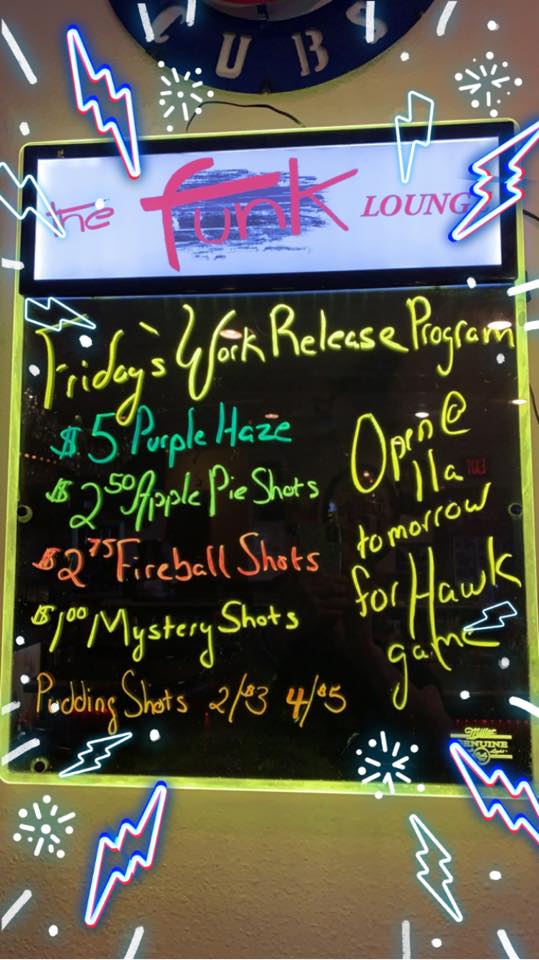 CUBS
the funk LOUNG
Friday's Work Release Program
$5 Purple Haze
$2.50 Apple Pie Shots
$2.75 Fireball Shots
$1.00 Mystery Shots
Pudding Shots 2/$3 4/$5
Open @
11a
tomorrow
for Hawk
game
Miller
GENUINE